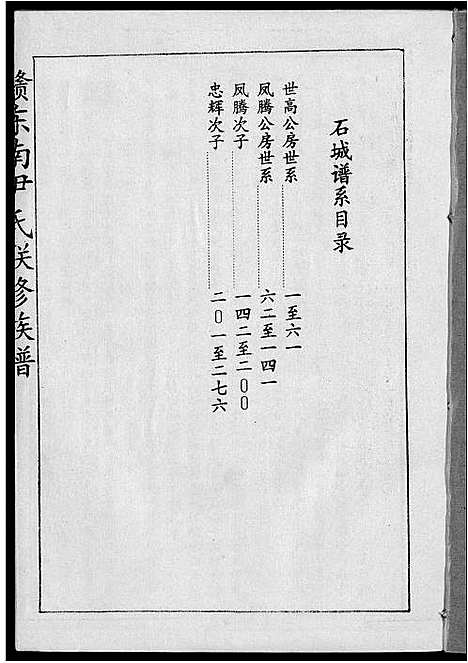 石城谱系目录
世高公房世系……一至六一
凤腾公房世系……六二至一四一
凤腾次子……一四二至二00
忠辉次子……二0一至二七六
赣东南尹氏联修族谱